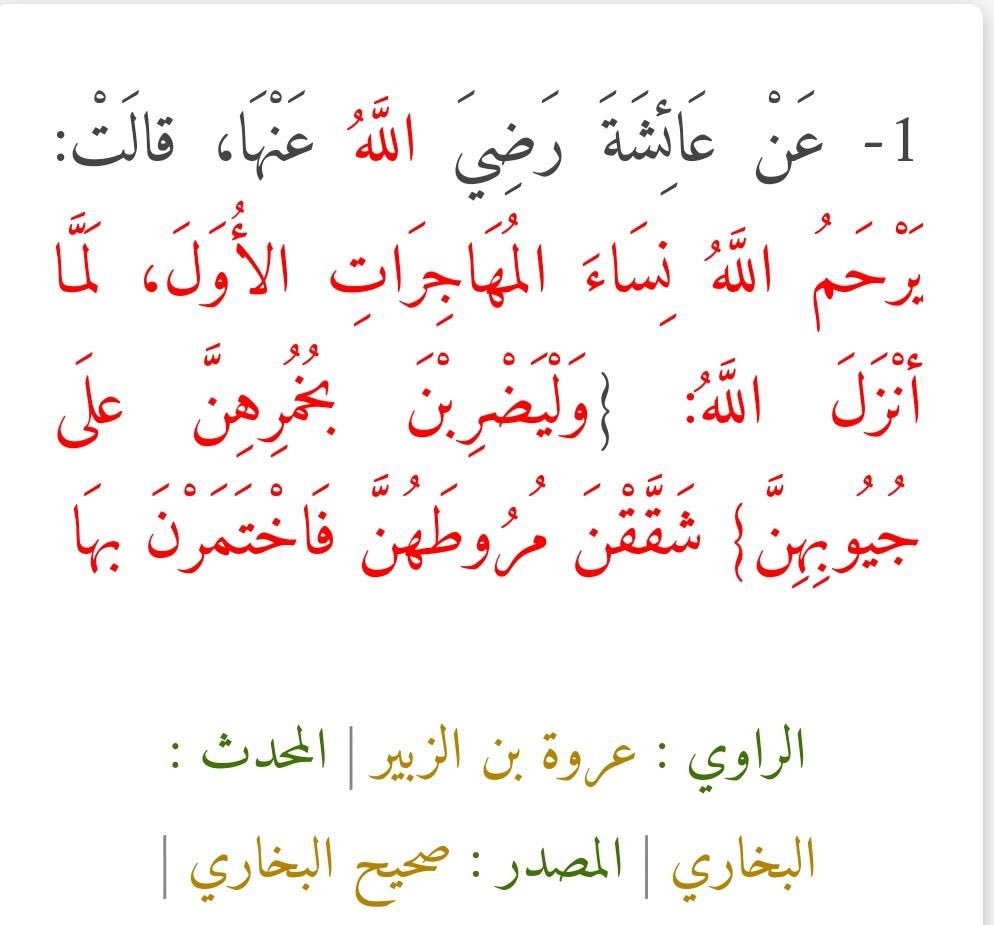 1- عَنْ عَائِشَةَ رَضِيَ اللَّهُ عَنْهَا، قالَتْ:
يَرْحَمُ اللَّهُ نِسَاءَ المُهَاجِرَاتِ الأُوَلَ، لَمَّا
أنْزَلَ اللَّهُ: {وَلْيَضْرِبْنَ بخُمُرِهِنَّ علَى
جُيُوبِهِنَّ} شَقَّقْنَ مُرُوطَهُنَّ فَاخْتَمَرْنَ بهَا
الراوي : عروة بن الزبير | المحدث :
البخاري | المصدر : صحيح البخاري |